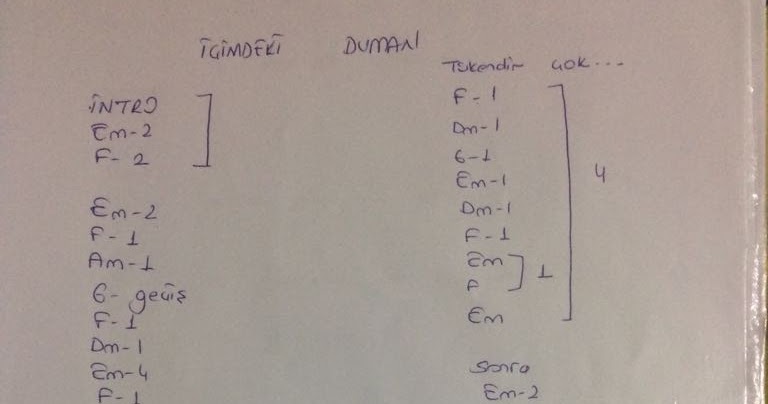 İÇİMDEKİ DUMAN
İNTRO
Em-2
F-2
Em-2
F-1
Am-1
G- geçiş
F-1
Dm-1
Em-4
F-1
Tükendim çok...
F-1
Dm-1
G-1
Em-1
Dm-1
F-1
Em
F
1
Em
4
Sonra
Em-2